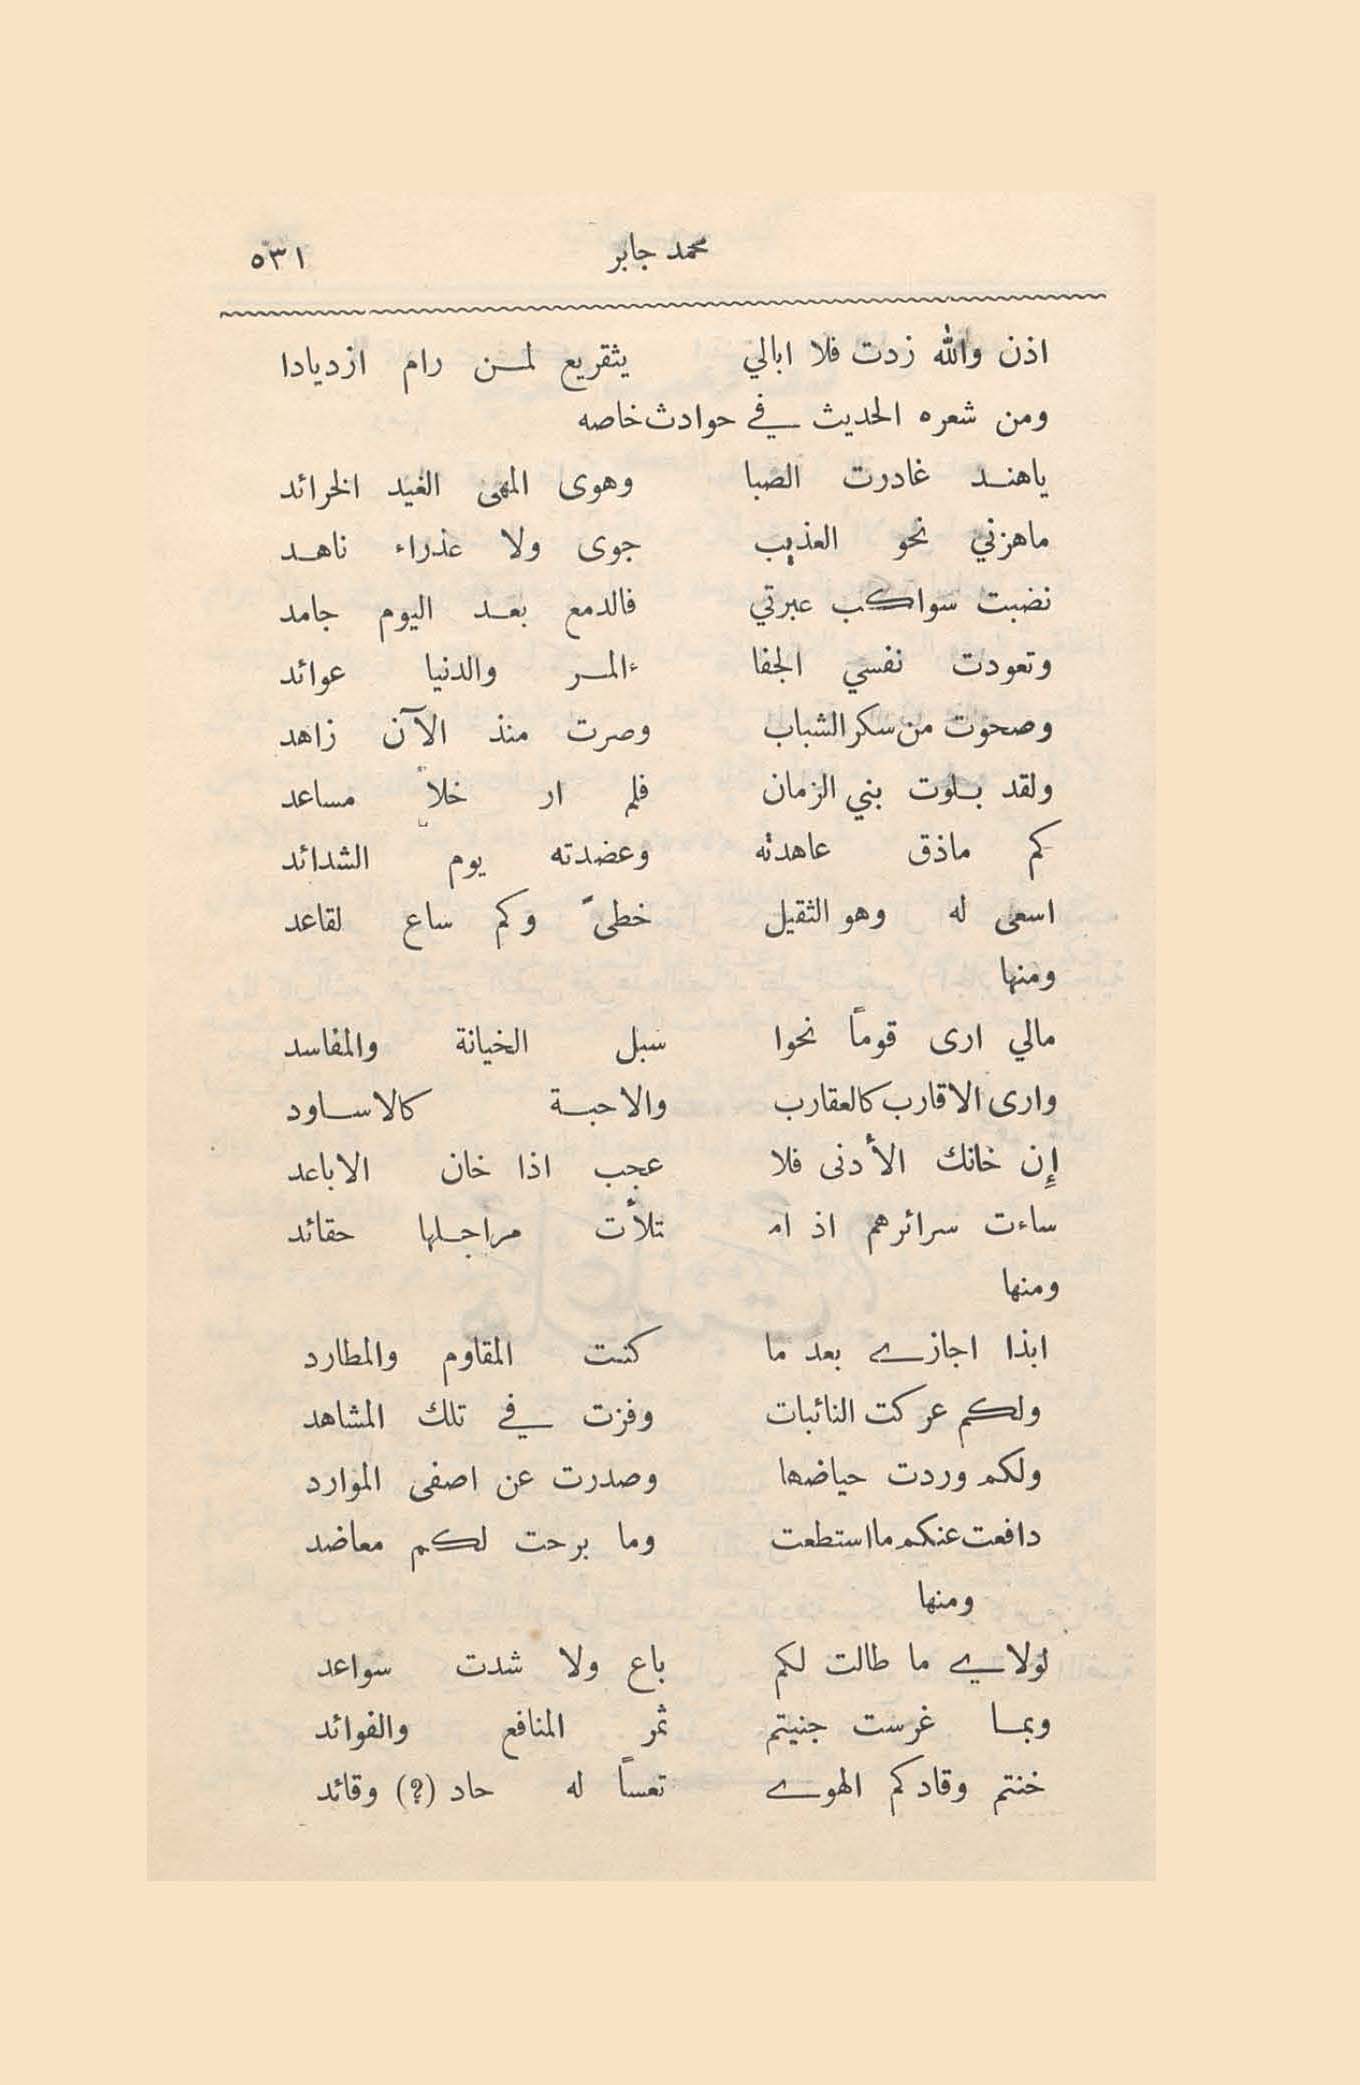 محمد جابر ٥٣١
اذن والله زدت فلا ابالي يثقريع لمن رام ازديادا
ومن شعره الحديث في حوادث خاصه
ياهند غادرت الصبا وهوى المهى الغيد الخرائد
ماهزني نحو العذيب جوى ولا عذراء ناهد
نضبت سواكب عبرتي فالدمع بعد اليوم جامد
وتعودت نفسي الجفا ءالمر والدنيا عوائد
وصحوت من سكر الشباب وصرت منذ الآن زاهد
ولقد بلوت بني الزمان فلم ار خلاً مساعد
كم ماذق عاهدته وعضدته يوم الشدائد
اسعى له وهو الثقيل خطىً وكم ساع لقاعد
ومنها
مالي ارى قوماً نحوا سبل الخيانة والمفاسد
وارى الاقارب كالعقارب والاحبة كالاساود
إن خانك الأدنى فلا عجب اذا خان الاباعد
ساءت سرائرهم اذ ام تلأت مراجلها حقائد
ومنها
ابذا اجازي بعد ما كنت المقاوم والمطارد
ولكم عركت النائبات وفزت في تلك المشاهد
ولكم وردت حياضها وصدرت عن اصفى الموارد
دافعت عنكم ما استطعت وما برحت لكم معاضد
ومنها
لولاي ما طالت لكم باع ولا شدت سواعد
وبما غرست جنيتم ثمر المنافع والفوائد
خنتم وقادكم الهوى تعساً له حاد (؟) وقائد